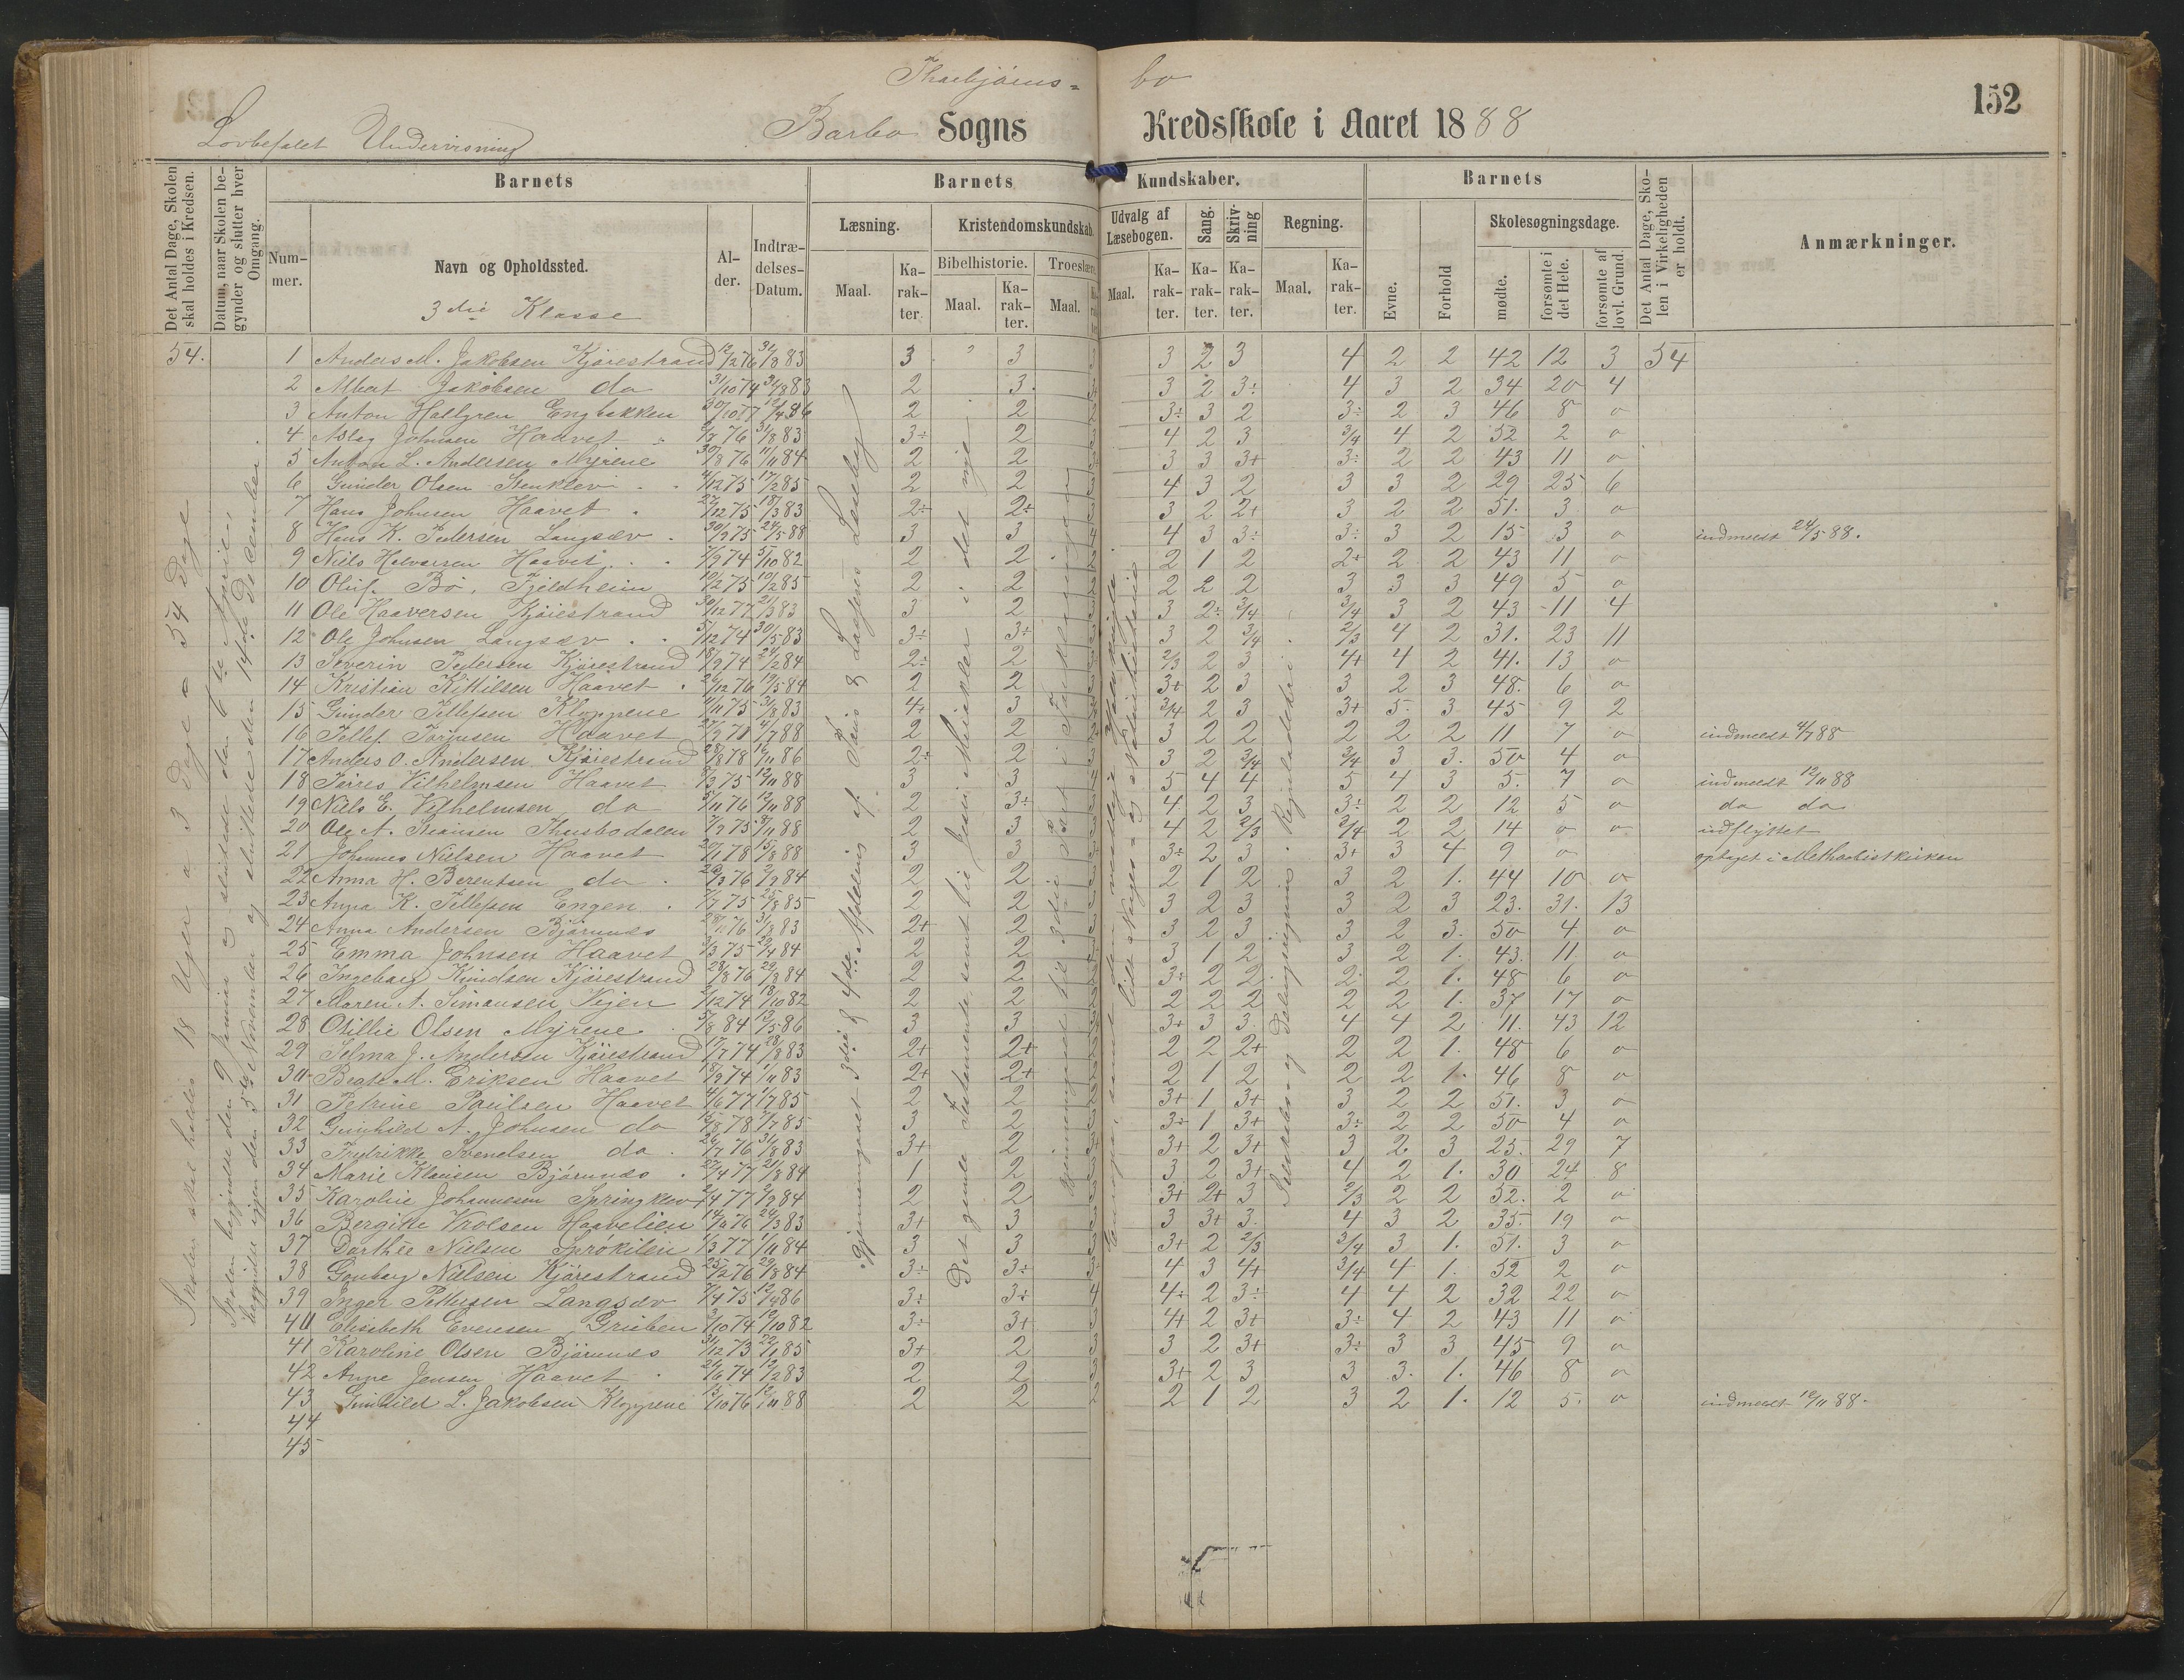 Thorbjørns= bo
152
Lovbefalet Undervisning
Barbo Sogns Kredsskole i Aaret 1888
Det Antal Dage, Skolen skal holdes i Kredsen.
Datum, naar Skolen begynder og slutter hver Omgang.
Barnets
Barnets Kundskaber.
Barnets
Det Antal Dage, Skolen i Virkeligheden er holdt.
Anmærkninger.
Nummer.
Navn og Opholdssted.
Alder.
Indtrædelses-Datum.
Læsning.
Kristendomskundskab.
Udvalg af Læsebogen.
Sang.
Skrivning
Regning.
Evne.
Forhold
Skolesøgningsdage.
Bibelhistorie.
Troeslære.
Maal.
Karakter.
mødte.
forsømte i det Hele.
forsømte af lovl. Grund.
3die Klasse
54. 1 Anders M. Jakobsen Kjørestrand 12/2 76 31/8 83 3 3 3 3 2 3 4 2 2 42 12 3 54
2 Albert Jakobsen do 31/10 74 31/8 83 2 3 3 2 3÷ 4 3 2 34 20 4
3 Anton Hallgren Engbakken 30/10 77 12/4 86 2 2 3÷ 3 2 3÷ 2 3 46 8 o
4 Aslag Johnsen Haavet 76 31/8 83 3÷ 2 4 2 3 3/4 4 2 52 2 o
5 Anton L. Andersen Myrene 30/8 76 11/11 84 2 2 3 3 3+ 3÷ 2 2 43 11 o
6 Gunder Olsen Stenklev 4/12 75 17/2 85 2 2 4 3 2 3 3 2 29 25 6
7 Hans Johnsen Haavet 27/12 75 18/3 83 2÷ 2÷ 3 2 2+ 3 2 2 51. 3 o
8 Hans K. Pedersen Langsæv 30/9 75 24/5 88 3 3 4 4 3 3÷ 3÷ 3 2 15 3 o indmeldt 24/5 88.
9 Niels Halvorsen Haavet 7/9 74 5/10 82 2 2 2 1 2 2+ 2 2 43 11 o
10 Oluf Bø, Fjeldheim 10/2 75 19/2 85 2 2 2 2 2 3 3 3 49 5 o
11 Ole Haaversen Kjørestrand 30/12 77 21/5 83 3 2 3 2÷ 3/4 3/4 3 2 43 11 4
12 Ole Johnsen Langsæv 5/12 74 30/5 83 3÷ 3÷ 3 2 3/4 2/3 4 2 31. 23 11
13 Severin Pedersen Kjørestrand 18/9 74 24/2 84 2÷ 2 2/3 2 3 4+ 4 2 41. 13 o
14 Kristian Kittilsen Haavet 26/12 76 19/5 84 2 2 3+ 2 3 3 2 3 48. 6 o
15 Gunder Tellefsen Kloppene 11/11 75 31/8 83 4+ 3 3/4 2 3 3+ 5 3 45 9 2
16 Tellef Torjusen Haavet 4/7 88 2 2 3 2 2 2 2 2 11 7 o indmeldt 4/7 88
17 Anders O. Andersen Kjørestrand 28/8 78 16/11 86 2÷ 2 3 2 3/4 3/4 3 3. 50 4 o
18 Vilhelmsen Haavet 75 12/11 88 3 3 4 5 4 4 5 4 3 5. 7 o indmeldt 12/11 88
19 Niels E. Vilhelmsen do 5/11 76 12/11 88 2 3÷ 4 2 3 3÷ 2 2 12 5 o do do
20 Ole A. 7/9 75 8/11 88 2 3 4 2 2/3 3/4 2 2 14 o o udflyttet
21 Johannes Nielsen Haavet 20/1 78 5/8 88 3 3 3÷ 2 3 3+ 3 4 9 o optaget i Methodistkirken
22 Anna H. Berentsen do 29/3 76 2/9 84 2 2 2 1 2 3 2 1. 44 10 o
23 Anna K. Tellefsen Engen 7/7 75 25/8 85 2 2 3 2 3 3 2 3 23. 31. 13
24 Anna Andersen Bjørnnes 76 31/8 83 2+ 2 3 2 3 3 2 3. 50 4 o
25 Emma Johnsen Haavet 3/3 75 29/4 84 2 2 3 1 2 3 2 1. 43. 11 o
26 Ingeborg Knudsen Kjørestrand 28/8 76 29/8 84 2 2 3÷ 2 2 2 2 1. 48 6 o
27 Maren A. Simonsen Vejen 2/12 74 18/10 82 2 2 2 2 2 2 2 1. 37 17 o
28 Otillie Olsen Myrene 5/8 84 12/5 86 3 3 3+ 3 3 4 4 2 11. 43 12
29 Selma J. Andersen Kjørestrand 17/7 74 28/8 83 2+ 2+ 2 2 2+ 2 2 1. 48 6 o
30 Beate M. Eriksen Haavet 18/9 74 1/11 83 2+ 2+ 2 1 2 2 2 1. 46 8 o
31 Petrine Paulsen Haavet 4/6 77 1/7 85 2 2 3+ 1 3+ 3 2 2 51. 3 o
32 Gunhild A. Johnsen do 15/8 78 7/7 85 3 2 3÷ 1 3+ 3÷ 2 2 50 4 o
33 Fredrikke Svendsen do 26/7 76 31/8 83 3+ 2 3+ 2 3+ 3 2 3 25 29 7
34 Marie Klausen Bjørnnes 27/4 77 21/8 84 1 2 3 2 3+ 4 2 1. 30 24 8
35 Karoline Johannesen Springklev 2/4 77 2/9 84 2 2 3+ 2+ 3 2/3 2 2 52. 2 o
36 Bergitte Vrolsen Haavelien 14/10 76 24/3 83 3+ 3 3 3+ 3 4 3 2 35. 19 o
37 Dorthee Nielsen 1/3 77 1/11 84 3 3 3+ 2 2/3 3/4 3 1. 51. 3 o
38 Gonborg Nielsen Kjørestrand 25/12 76 29/8 84 3÷ 3÷ 4 3 4+ 3/4 4 1. 52 2 o
39 Inger Pettersen Langsæv 7/4 75 12/4 86 3÷ 3÷ 4 4÷ 2 3÷ 4 4 2 32 22 o
40 Elisabeth Evensen Gruben 3/10 74 12/10 82 3÷ 3+ 3 4+ 2 3+ 3÷ 4 2 43 11 o
41 Karoline Olsen Bjørnnes 31/12 73 22/1 85 3+ 2 3 3 2 3+ 3÷ 3 3 45 9 o
42 Anne Jensen Haavet 24/6 74 12/2 83 2 2 3 3+ 2 3 3 3. 1. 46 8 o
43 Gunhild L. Jakobsen Kloppene 13/10 76 12/11 88 2 2 2 2 1 2 3 2 1. 12 5. o indmeldt 12/11 88.
44
45
Skolen skal holdes 18 Uger a 3 Dage = 54 Dage
Skolen begyndte den 9 Januar og sluttede den 6te April,
begyndte igjen den 5te November og sluttede den 14de December
Gjennemgaaet 3die & 4de Afdeling af Paus & Lassens Læsebog
Det gamle Testamente samt til Jesu Mirakler i det nye
Gjennemgaaet til 3die Part i Forklaringen
Europa, samt den vigtigste
lidt Norges- og Naturhistorie
Selskabs- og Delingsregning. Hovedsagelig